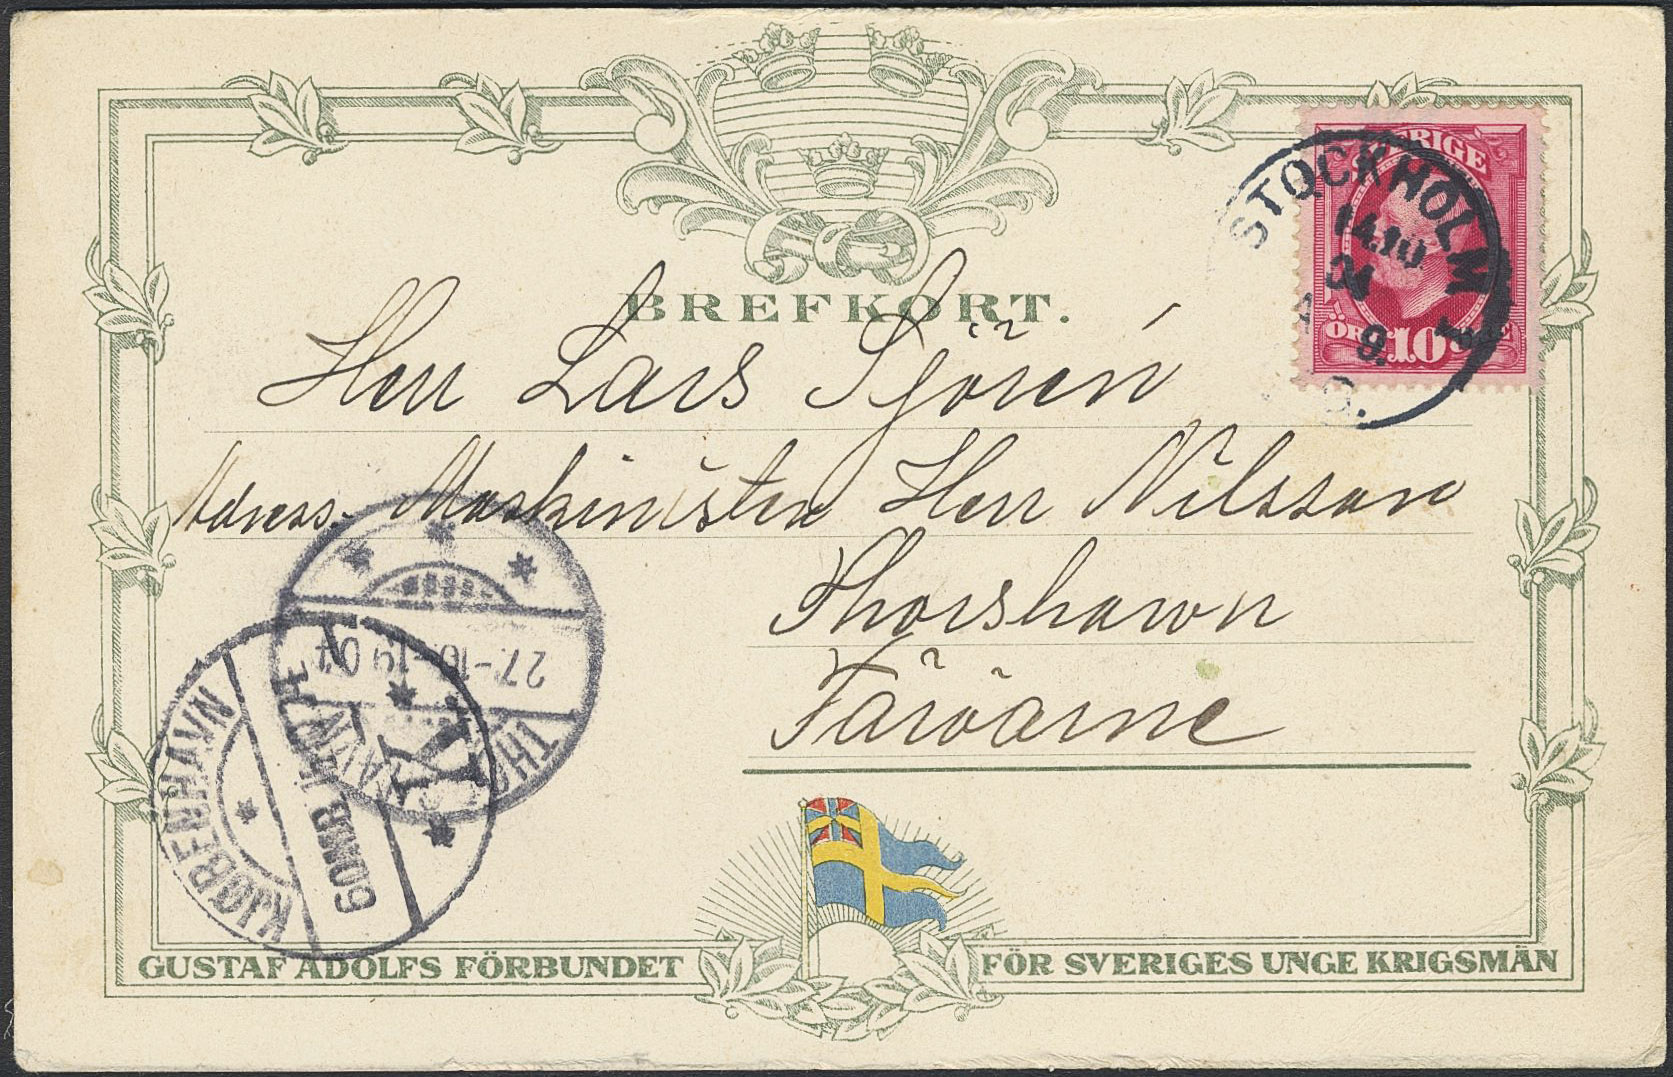 BREFKORT.
SVERIGE
ÖRE 10 ÖRE
STOCKHOLM
14.10.
04
9.
Herr Lars Sjörén
Adress. Maskinisten Herr Nilsson
Thorshavn
Färöarne
27.-10.-1904
THORSHAVN
KJØBENHAVN
KL
GUSTAF ADOLFS FÖRBUNDET
FÖR SVERIGES UNGE KRIGSMÄN